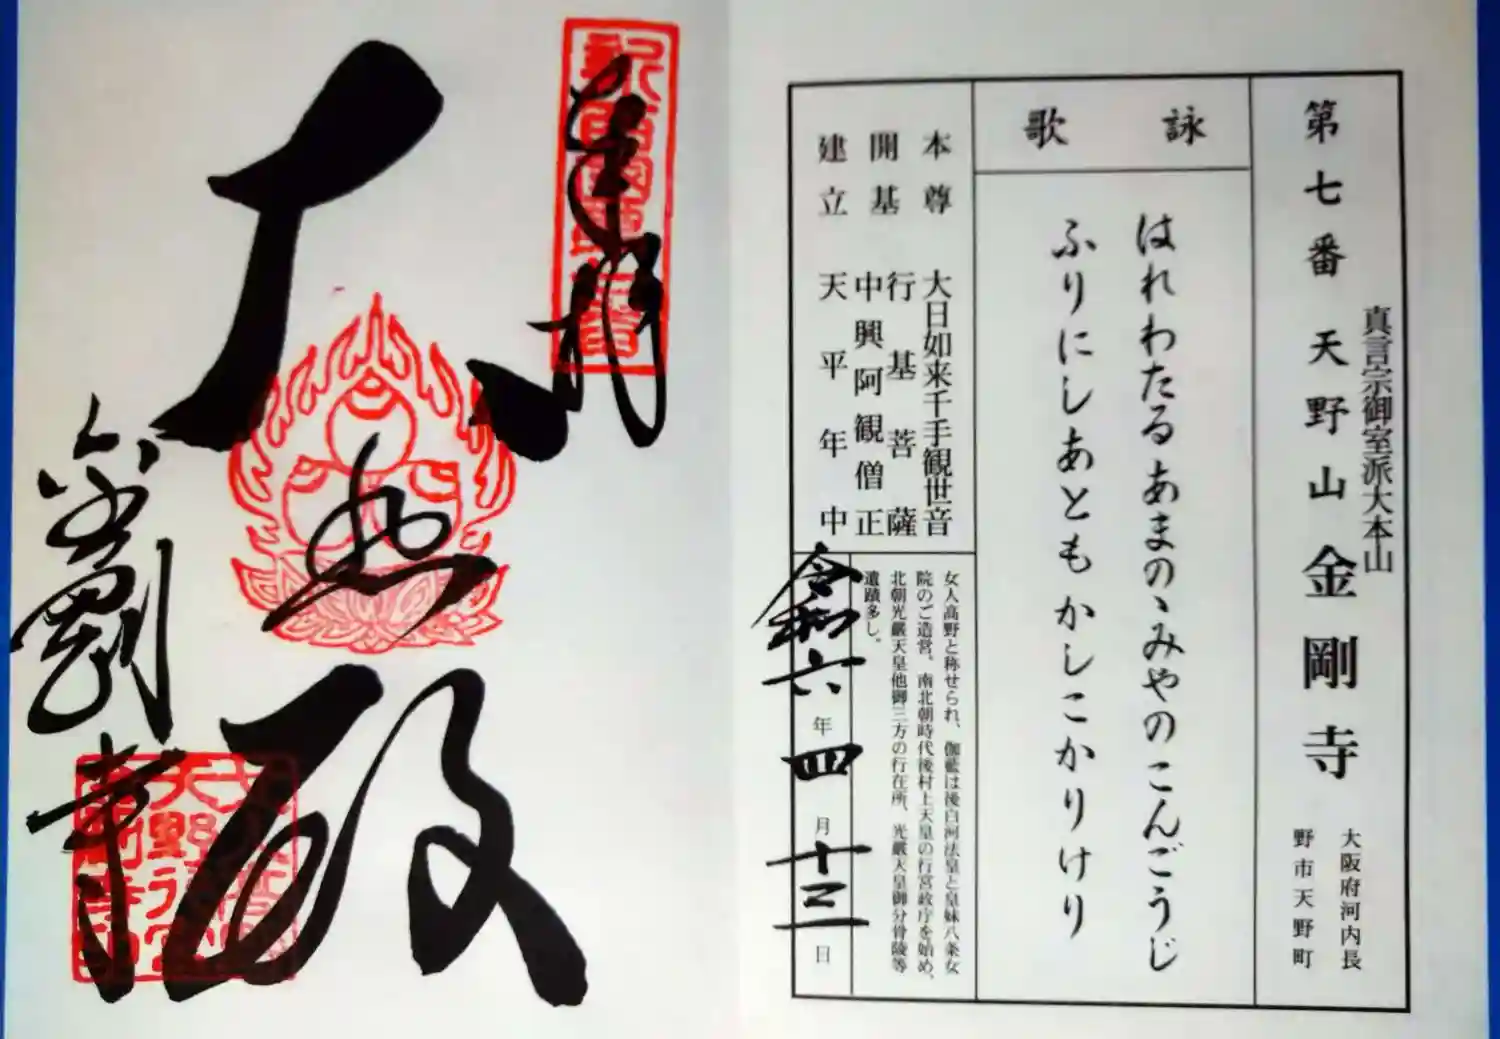 真言宗御室派大本山
第七番 天野山 金剛寺
大阪府河内長
野市天野町
詠歌
はれわたるあまのゝみやのこんごうじ
ふりにしあともかしこかりけり
本尊 大日如来千手観世音
開基 行基菩薩
中興阿観僧正
建立 天平年中
女人高野と称せられ、伽藍は後白河法皇と皇妹八条女
院のご造営、南北朝時代後村上天皇の行宮政庁を始め、
北朝光厳天皇他御三方の行在所、光厳天皇御分骨陵等
遺蹟多し。
令和六年四月十三日
奉拝
大悲殿
金剛寺